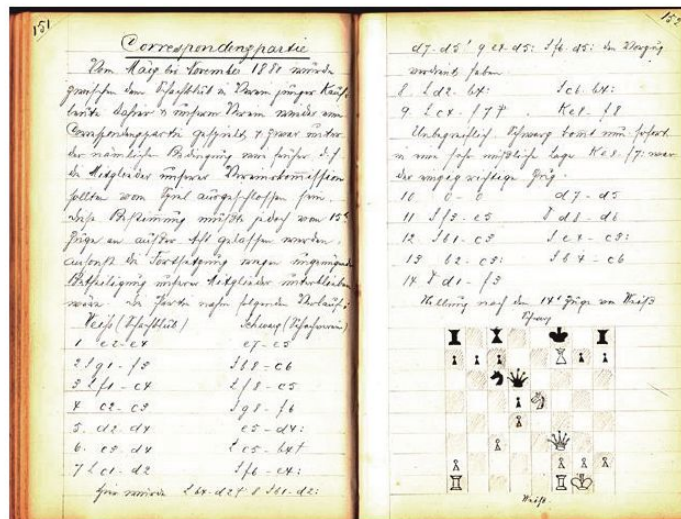 151
Correspondenzpartie
Vom März bis November 1880 wurde
zwischen dem Schachklub in Verein junger Kauf-
leute dahier & unserem Verein wieder eine
Correspondenzpartie gespielt & zwar unter
der nämlichen Bedingung wie früher, d. h.
die Mitglieder unserer Vereinskommission
sollten vom Spiel ausgeschlossen sein.
Diese Bestimmung mußte jedoch vom 15t
Zuge an außer Acht gelassen werden,
ansonst die Fortsetzung wegen ungenügender
Betheiligung unserer Mitglieder unterblieben
wäre. Die Partie nahm folgenden Verlauf:
Weiß (Schachklub) Schwarz (Schachverein)
1 e2-e4 e7-e5
2 Sg1-f3 Sb8-c6
3 Lf1-c4 Lf8-c5
4 c2-c3 Sg8-f6
5. d2-d4 e5-d4:
6. c3-d4 Lc5-b4†
7 Lc1-d2 Sf6-e4:
Hier würde Lb4-d2† 8 Sb1-d2:
152
d7-d5! 9 e4-d5: Sf6-d5: den Vorzug
verdient haben.
8. Ld2-b4: Sc6-b4:
9. Lc4-f7† Ke8-f8
Unbegreiflich. Schwarz kommt nun sofort
in eine sehr mißliche Lage. Ke8-f7: war
der einzig richtige Zug.
10 0-0 d7-d5
11 Sf3-e5 Dd8-d6
12 Sb1-c3 Se4-c3:
13 b2-c3: Sb4-c6
14 Dd1-f3
Stellung nach dem 14t Zuge von Weiß
Schwarz
Weiß.